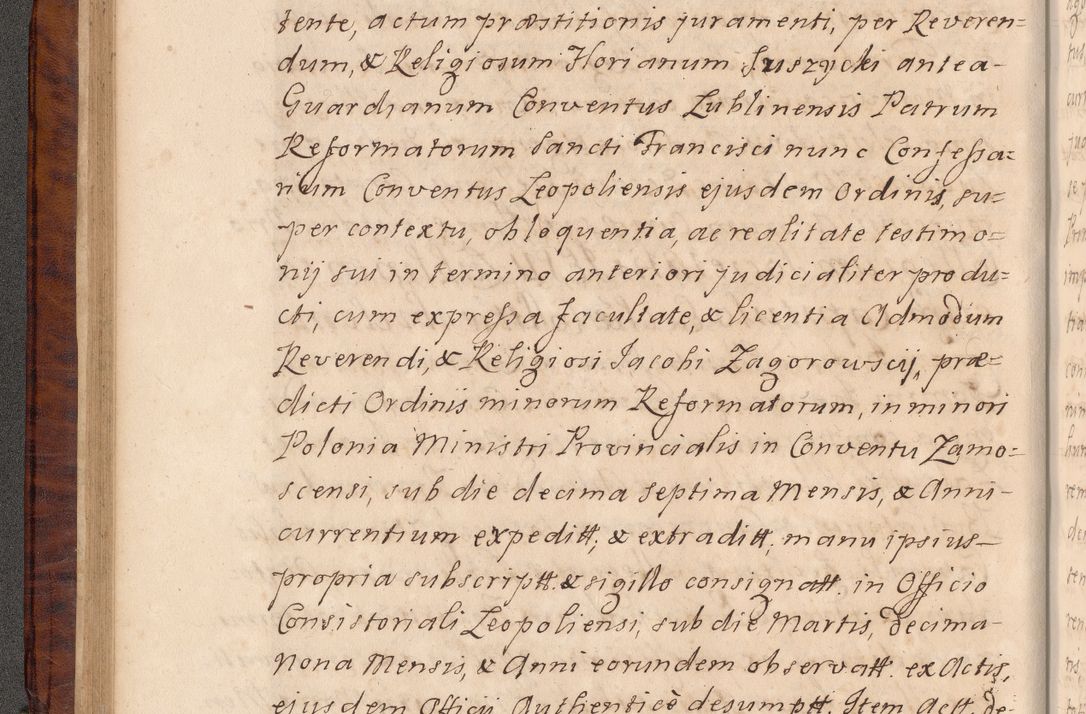 tente, actum præstitionis juramenti, per Reveren=
dum, & Religiosum Florianum Juszycki antea-
Guardianum Conventus Lublinensis Patrum
Reformatorum Sancti Francisci nunc Confessa=
rium Conventus Leopoliensis ejusdem Ordinis, su=
per contextu, obloquentia, ac realitate testimo=
nij sui in termino anteriori judicialiter produ=
cti, cum expressa facultate, & licentia Admodum
Reverendi, & Religiosi Jacobi Zagorowscij, præ=
dicti Ordinis minorum Reformatorum, in minori
Polonia Ministri Provincialis in Conventu Zamo=
scensi, sub die decima septima Mensis, & Anni-
currentium expeditt, & extraditt, manu ipsius-
propria subscriptt. & sigillo consignatt. in Officio
Consistoriali Leopoliensi, sub die Martis, decima-
nona Mensis, & Anni eorundem observatt. ex Actis,
ejusdem Officij Authenticè desumptt. Item Actt. de-